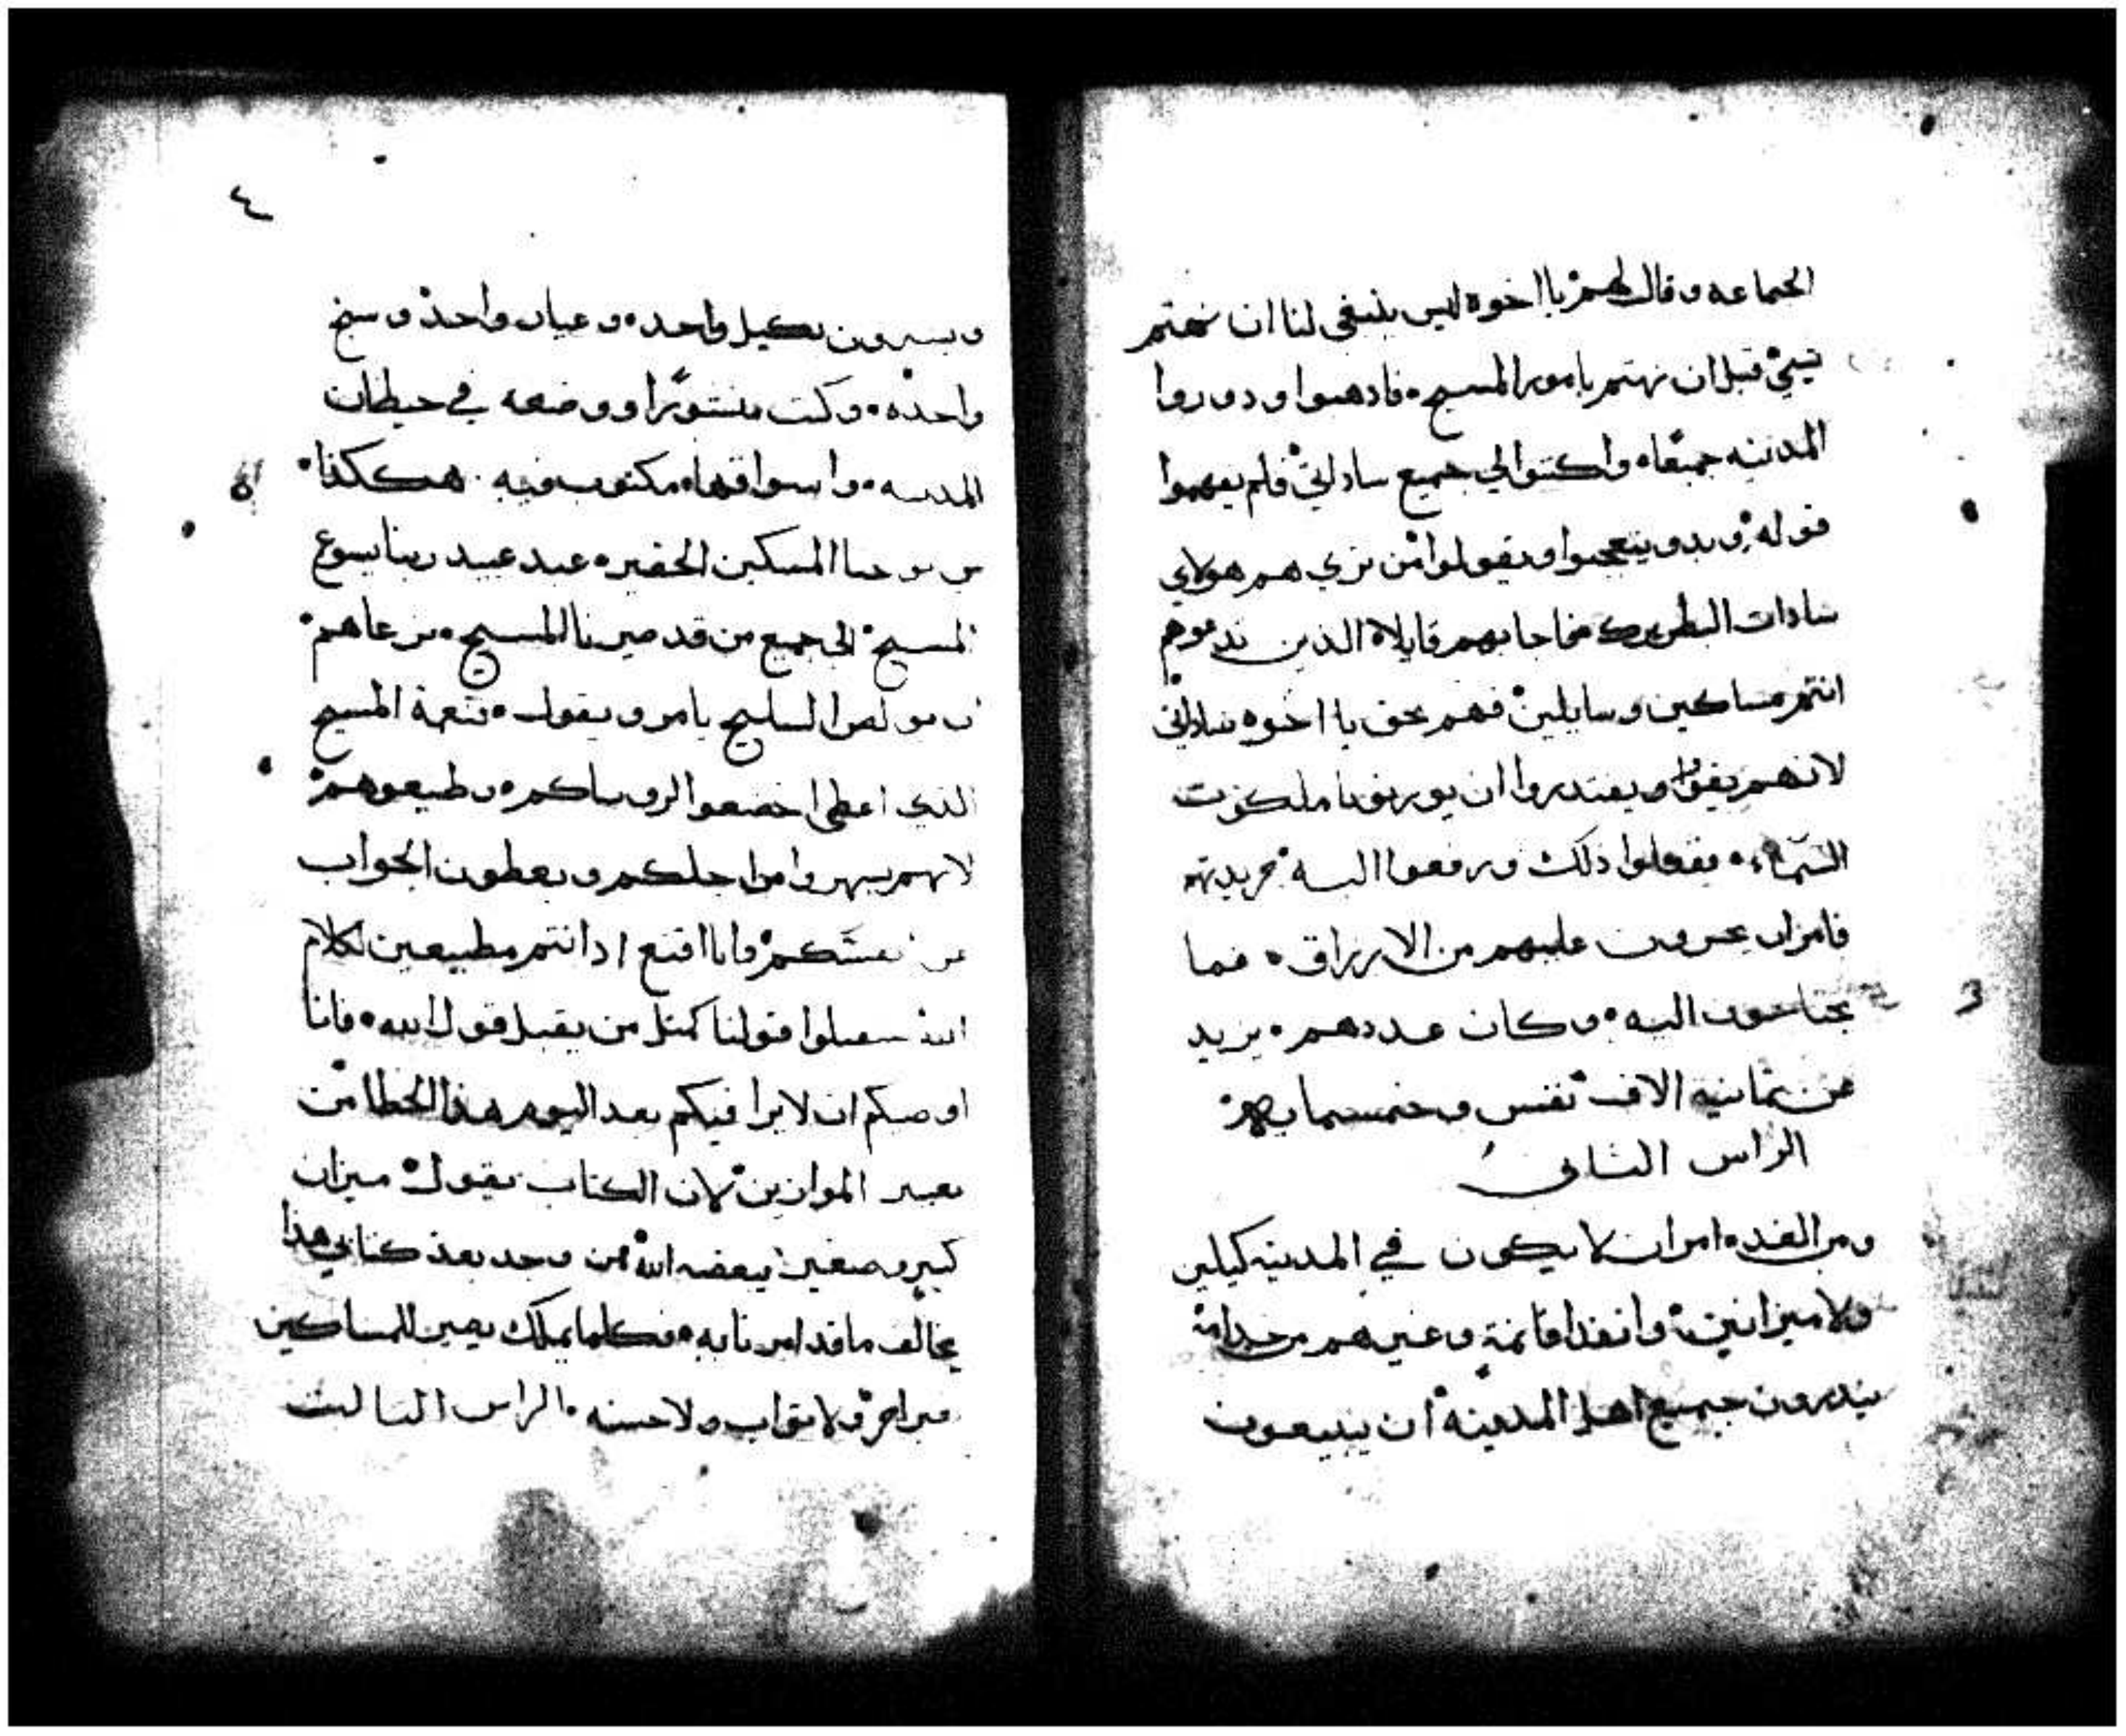 الجماعه وقال لهم يا اخوه ليس ينبغي لنا ان نهتم
بشي قبل ان نهتم بامور المسيح فادهبوا ودوروا
المدينه جميعًا واكتبوا لي جميع ساداتي فلم يفهموا
قوله وبدو يتعجبوا ويقولوا من تري هم هولاي
سادات البطريرك فاجابهم قايلا الذين تدعوهم
انتم مساكين وسايلين فهم بحق يا اخوه ساداتي
لانهم يقوا ويقتدروا ان يورثونا ملكوت
السماء ففعلوا ذلك ورفعوا اليه جريدته
فامر ان يجرون عليهم من الارزاق فما
يحتاجون اليه وكان عددهم يزيد
عن ثمانيه الاف نفس وخمسمايه
الراس الثاني
ومن الغد امر ان لا يكون في المدينه كيلين
ولا ميزانين وانفذ اقانمة وغيرهم من خدامه
ينذرون جميع اهل المدينه ان يبيعون
٤
ويشترون بكيل واحد وعيار واحد وسنج
واحده وكتب منشورًا ووضعه في حيطان
المدينه واسواقها مكتوب فيه هكذا
من يوحنا المسكين الحقير عبد عبيد ربنا يسوع
المسيح الي جميع من قد صيرنا المسيح نرعاهم
بولص السليح يامر ويقول بنعمة المسيح
الذي اعطي اخضعوا لروساكم وطيعوهم
لانهم يسهروا من اجلكم ويعطون الجواب
عن نفسكم وانا اقنع اذ انتم مطيعين لكلام
الله تقبلوا قولنا كمثل من يقبل قول الله فانا
اوصيكم ان لا يرا فيكم بعد اليوم هذا الخطا من
تغيير الموازين لان الكتاب يقول ميزان
كبير وصغير يبغضه الله فمن وجد بعد كتابي هذا
يخالف ما قد امرنا به فكلما يملك يصير للمساكين
بغير اجر ولا ثواب ولا حسنه الراس الثالث